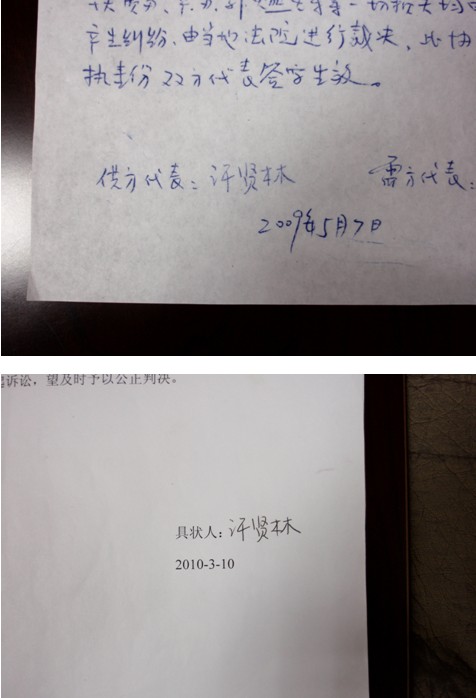 一切损失均
产生纠纷，由当地法院进行裁决，此协
执壹份双方代表签字生效。
供方代表：许贤林 需方代表：
2009年5月7日
起诉讼，望及时予以公正判决。
具状人：许贤林
2010-3-10